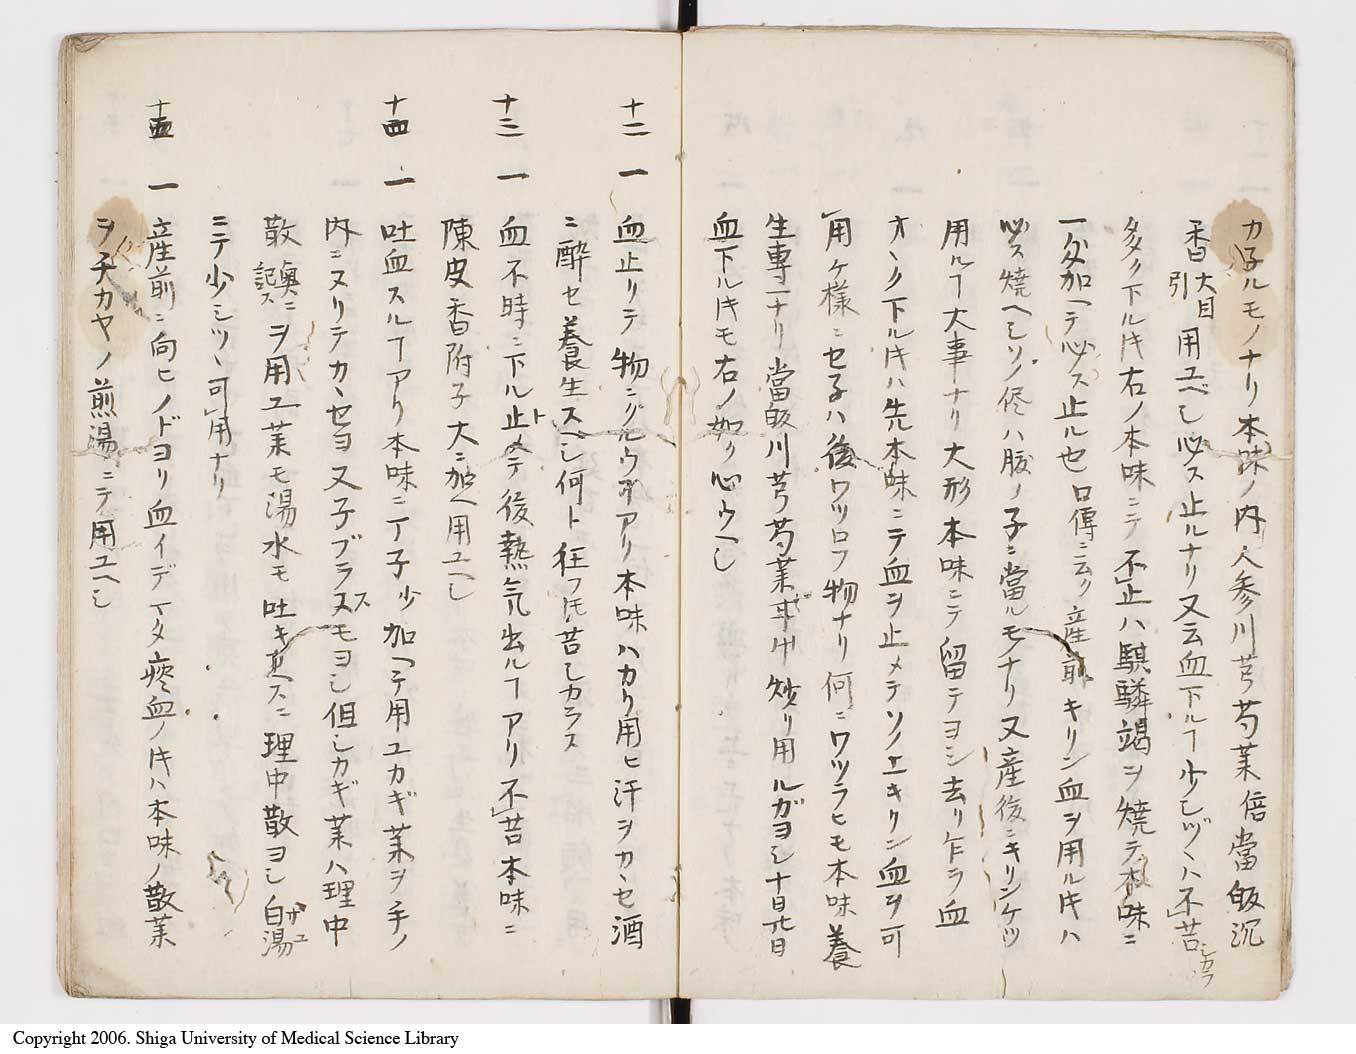 カ子ルモノナリ本味ノ内人参川芎芍薬倍當皈沉
香大目引用ユベし必ス止ルナリ又云血下ルヿ少しヅヽハ不苦しカラ
多ク下ル𪜈右ノ本味ニテ不止ハ騏驎竭ヲ焼テ本味ニ
一分加ヘテ必ス止ルせ口傳ニ云ク産前キリン血ヲ用ル𪜈ハ
必ス焼ヘしソノ侭ハ腹ノ子ニ當ルモノナリ又産後ニキリンケツ
用ルヿ大事ナリ大形本味ニテ留テヨシ去リ乍ラ血
オヽク下ル𪜈ハ先本味ニテ血ヲ止メテソノ上キリン血ヲ可
用ケ様ニセ子ハ後ワツロフ物ナリ何ニワツラヒモ本味養
生専一ナリ當皈川芎芍薬 炒リ用ルガヨシ十日廿日
血下ル𪜈モ右ノ如ク心ウヘし
十二 一 血止リテ物ニグルウヿアリ本味ハカリ用ヒ汗ヲカヽせ酒
ニ酔セ養生スヘし何ト狂フ𪜈苦しカラス
十三 一 血不時ニ下ル止メテト後熱気出ルヿアリ不苦本味ニ
陳皮香附子大ニ加ヘ用ユヘし
十四 一 吐血スルヿアリ本味ニ丁子少加ヘテ用ユカギ薬ヲ手ノ
内ニヌリテカヽセヨ又子ブラスヌモヨし但しカギ薬ハ理中
散奥ニ記スヲ用ユ薬モ湯水モ吐キ ニ理中散ヨし白湯サユ
ニテ少しツヽ可用ナリ
十五 一 産前ニ向ヒノドヨリ血イデ 瘀血ノ𪜈ハ本味ノ散薬
ヲチカヤノ煎湯ニテ用ユヘし
Copyright 2006. Shiga University of Medical Science Library